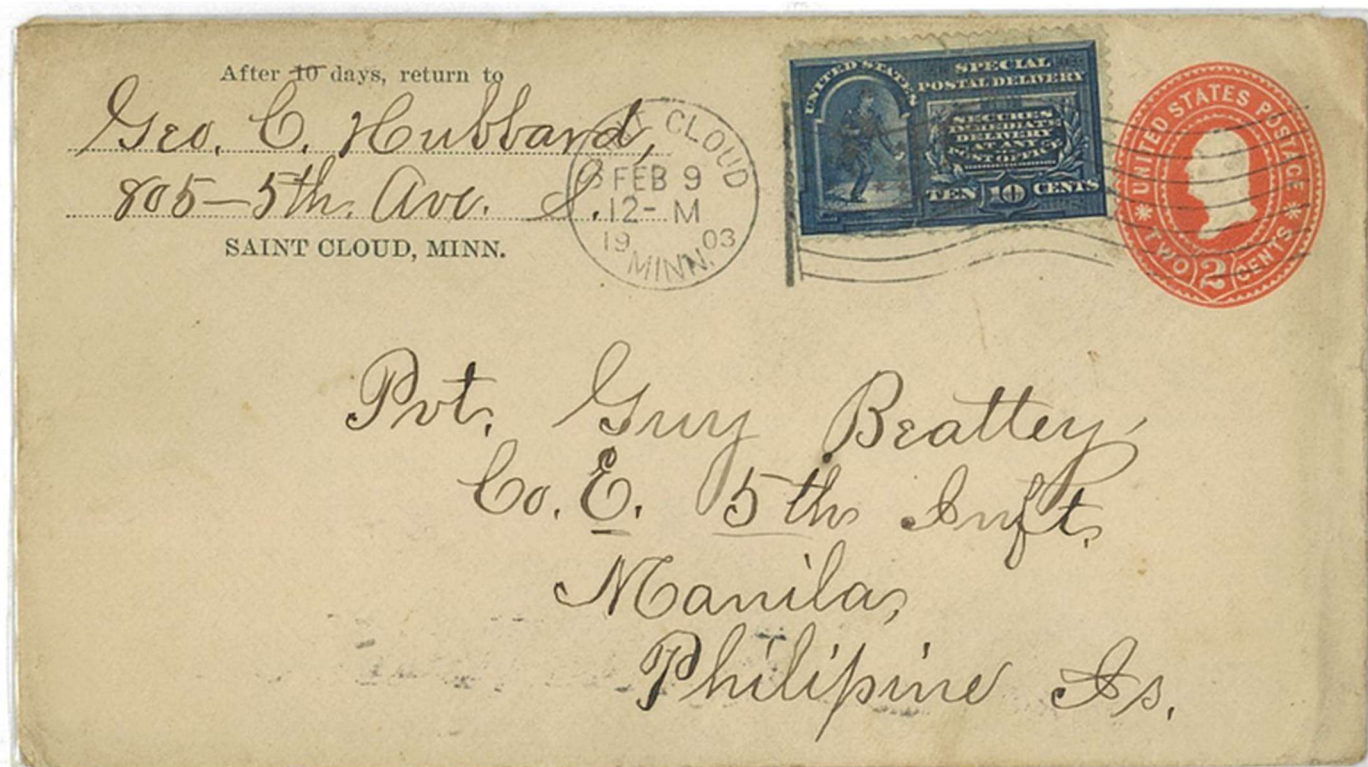 After 10 days, return to
Geo. C. Hubbard,
805–5th. Ave. S.
SAINT CLOUD, MINN.
ST. CLOUD
FEB 9
12- M
19 03
MINN.
UNITED STATES
SPECIAL
POSTAL DELIVERY
SECURES
IMMEDIATE
DELIVERY
AT ANY
POST OFFICE
TEN 10 CENTS
UNITED STATES POSTAGE
TWO 2 CENTS
Pvt. Guy Beattey,
Co. E. 5th Inft.
Manila,
Philipine Is.